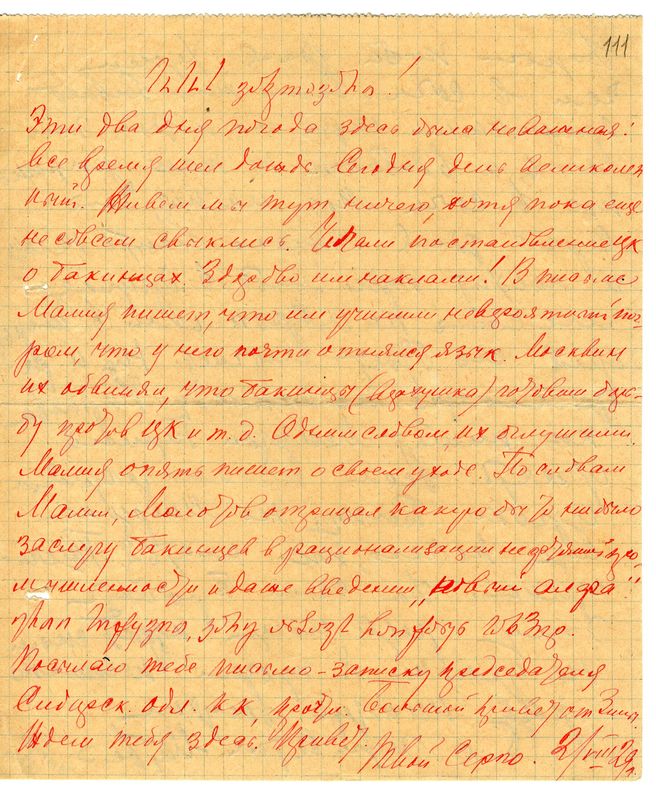 111
Эти два дня погода здесь была неважная:
все время шел дождь. Сегодня день великолеп
ный. Живем мы тут ничего, хотя пока еще
не совсем свыклись. Читали постановление ЦК
о бакинцах. Здорово им наклали! В письме
Мамия пишет, что им учинили невероятный пог-
ром, что у него почти отнялся язык. Москвин
их обвинял, что бакинцы (Азахушка) готовили
бу против ЦК и т. д. Одним словом, их оглушили.
Мамия опять пишет о своем уходе. По словам
Мамии, Молотов отрицал какую бы то ни было
заслугу бакинцев в рационализации нефтяной про
мышленности и даже введении „новый алфа"
Посылаю тебе письмо-записку председателя
Сибирск. обл. КК, прочти. Большой привет от Зины.
Ждем тебя здесь. Привет.
Твой Серго. 2/VIII 29